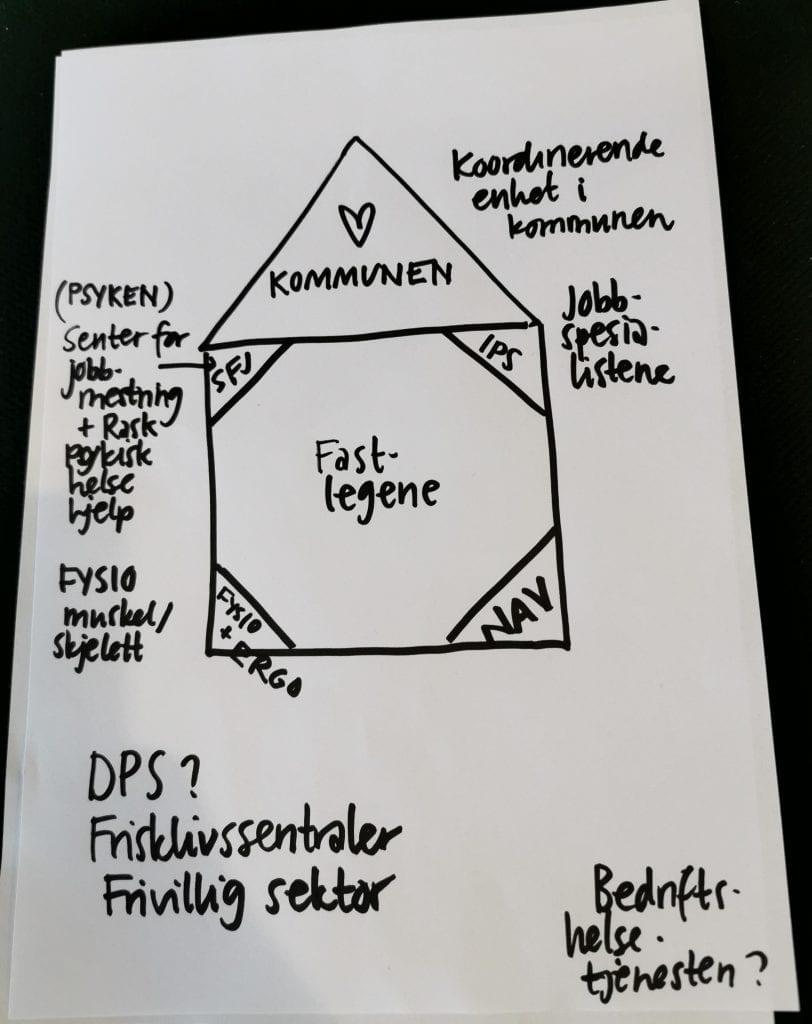 Koordinerende
enhet i
kommunen
KOMMUNEN
(PSYKEN)
Senter for
jobb-
mestning
+ Rask
psykisk
helse
hjelp
SFJ
IPS
Jobb-
spesia-
listene
Fast-
legene
FYSIO
muskel/
skjelett
FYSIO
+ ERGO
NAV
DPS?
Frisklivssentraler
Frivillig sektor
Bedrifts-
helse-
tjenesten?